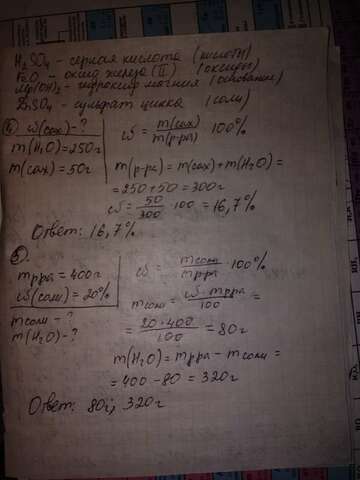 H₂SO₄ - серная кислота (кислоты)
FeO - оксид железа (II) (оксиды)
Mg(OH)₂ - гидроксид магния (основания)
ZnSO₄ - сульфат цинка (соли)
④ ω(сах) - ?
m(H₂O) = 250г
m(сах) = 50г
ω = m(сах)/m(р-ра) · 100%
m(р-ра) = m(сах) + m(H₂O) =
= 250 + 50 = 300г
ω = 50/300 · 100 = 16,7%
Ответ: 16,7%
⑤.
mр-ра = 400г
ω(соли) = 20%
mсоли - ?
m(H₂O) - ?
ω = mсоли/mр-ра · 100%
mсоли = ω · mр-ра/100 =
= 20 · 400/100 = 80г
m(H₂O) = mр-ра - mсоли =
= 400 - 80 = 320г
Ответ: 80г; 320г